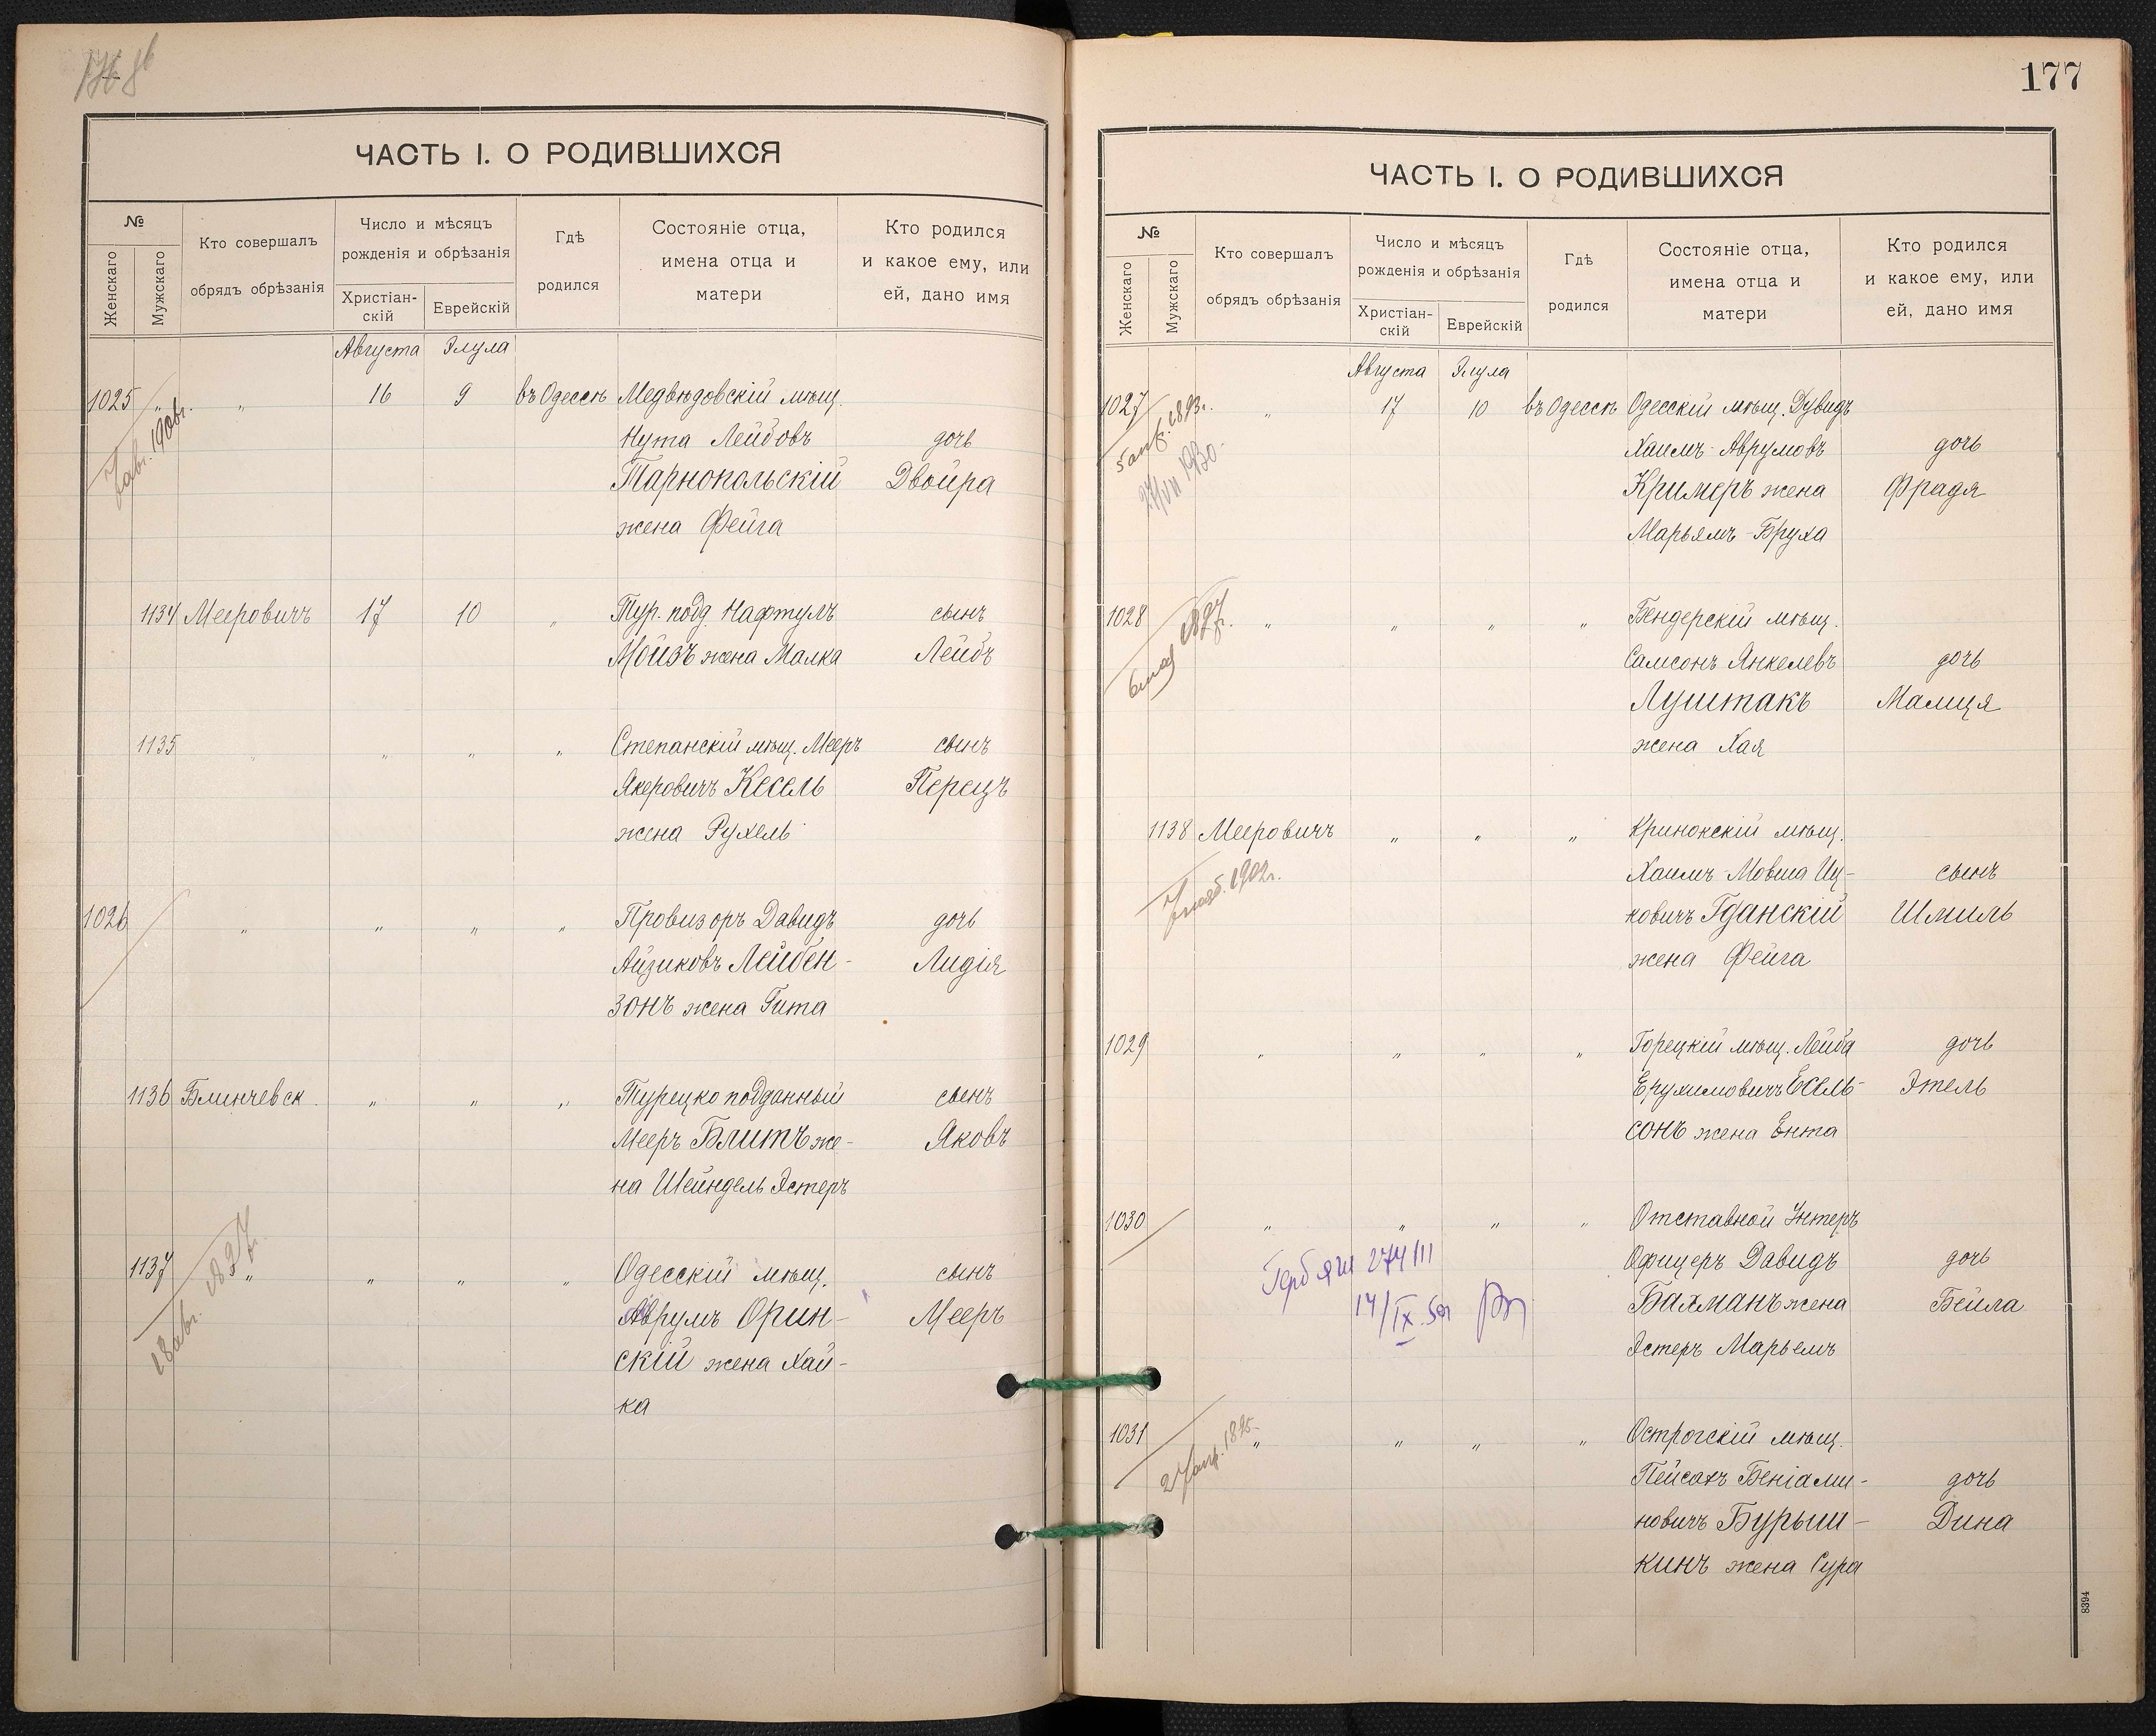 ЧАСТЬ I. О РОДИВШИХСЯ
№
Женскаго
Мужскаго
Кто совершалъ
обрядъ обрѣзанія
Число и мѣсяцъ
рожденія и обрѣзанія
Христіан-
скій
Еврейскій
Гдѣ
родился
Состояніе отца,
имена отца и
матери
Кто родился
и какое ему, или
ей, дано имя
Августа Элула
1025 " " 16 9 въ Одессѣ Медвѣдовскій мѣщ.
Нута Лейбовъ дочь
Тарнопольскій Двойра
жена Фейга
1134 Мееровичъ 17 10 " Тур. подд. Нафтулъ сынъ
Мойзъ жена Малка Лейбъ
1135 " " " " Степанскій мѣщ. Мееръ сынъ
Якеровичъ Кесель Перецъ
жена Рухель
1026 " " " " Провизоръ Давидъ дочь
Айзиковъ Лейбен- Лидія
зонъ жена Гита
1136 Блинчевск. " " " Турецко подданный сынъ
Мееръ Блитъ же- Яковъ
на Шейндель Эстеръ
1137 " " " " Одесскій мѣщ. сынъ
Аврумъ Орин- Мееръ
скій жена Хай-
ка
18 авг. 1897 г.
177
ЧАСТЬ I. О РОДИВШИХСЯ
№
Женскаго
Мужскаго
Кто совершалъ
обрядъ обрѣзанія
Число и мѣсяцъ
рожденія и обрѣзанія
Христіан-
скій
Еврейскій
Гдѣ
родился
Состояніе отца,
имена отца и
матери
Кто родился
и какое ему, или
ей, дано имя
Августа Элула
1027 " 17 10 въ Одессѣ Одесскій мѣщ. Дувидъ
Хаимъ-Аврумовъ дочь
Кримеръ жена Фрадя
Марьямъ-Бруха
27/VII 1930.
1028 " " " " Бендерскій мѣщ.
Самсонъ Янкелевъ дочь
Луштакъ Малця
жена Хая
1138 Мееровичъ " " " Кринокскій мѣщ.
Хаимъ-Мовша Иц- сынъ
ковичъ Гданскій Шмиль
жена Фейга
1029 " " " " Горецкій мѣщ. Лейба дочь
Ерухимовичъ Есель- Этель
сонъ жена Ента
1030 " " " " Отставной Унтеръ
Офицеръ Давидъ дочь
Бахманъ жена Бейла
Эстеръ Марьемъ
1031 " " " " Острогскій мѣщ.
Пейсахъ Беніами- дочь
новичъ Бурыш- Дина
кинъ жена Сура
8394